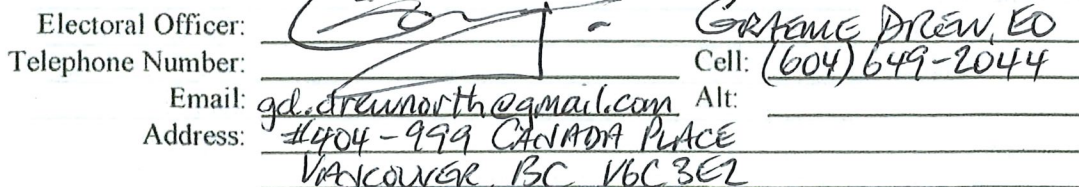 Electoral Officer: GRAEME DREW, EO
Telephone Number: Cell: (604) 649-2044
Email: gd.drewnorth@gmail.com Alt:
Address: #404-999 CANADA PLACE
VANCOUVER, BC V6C 3E2